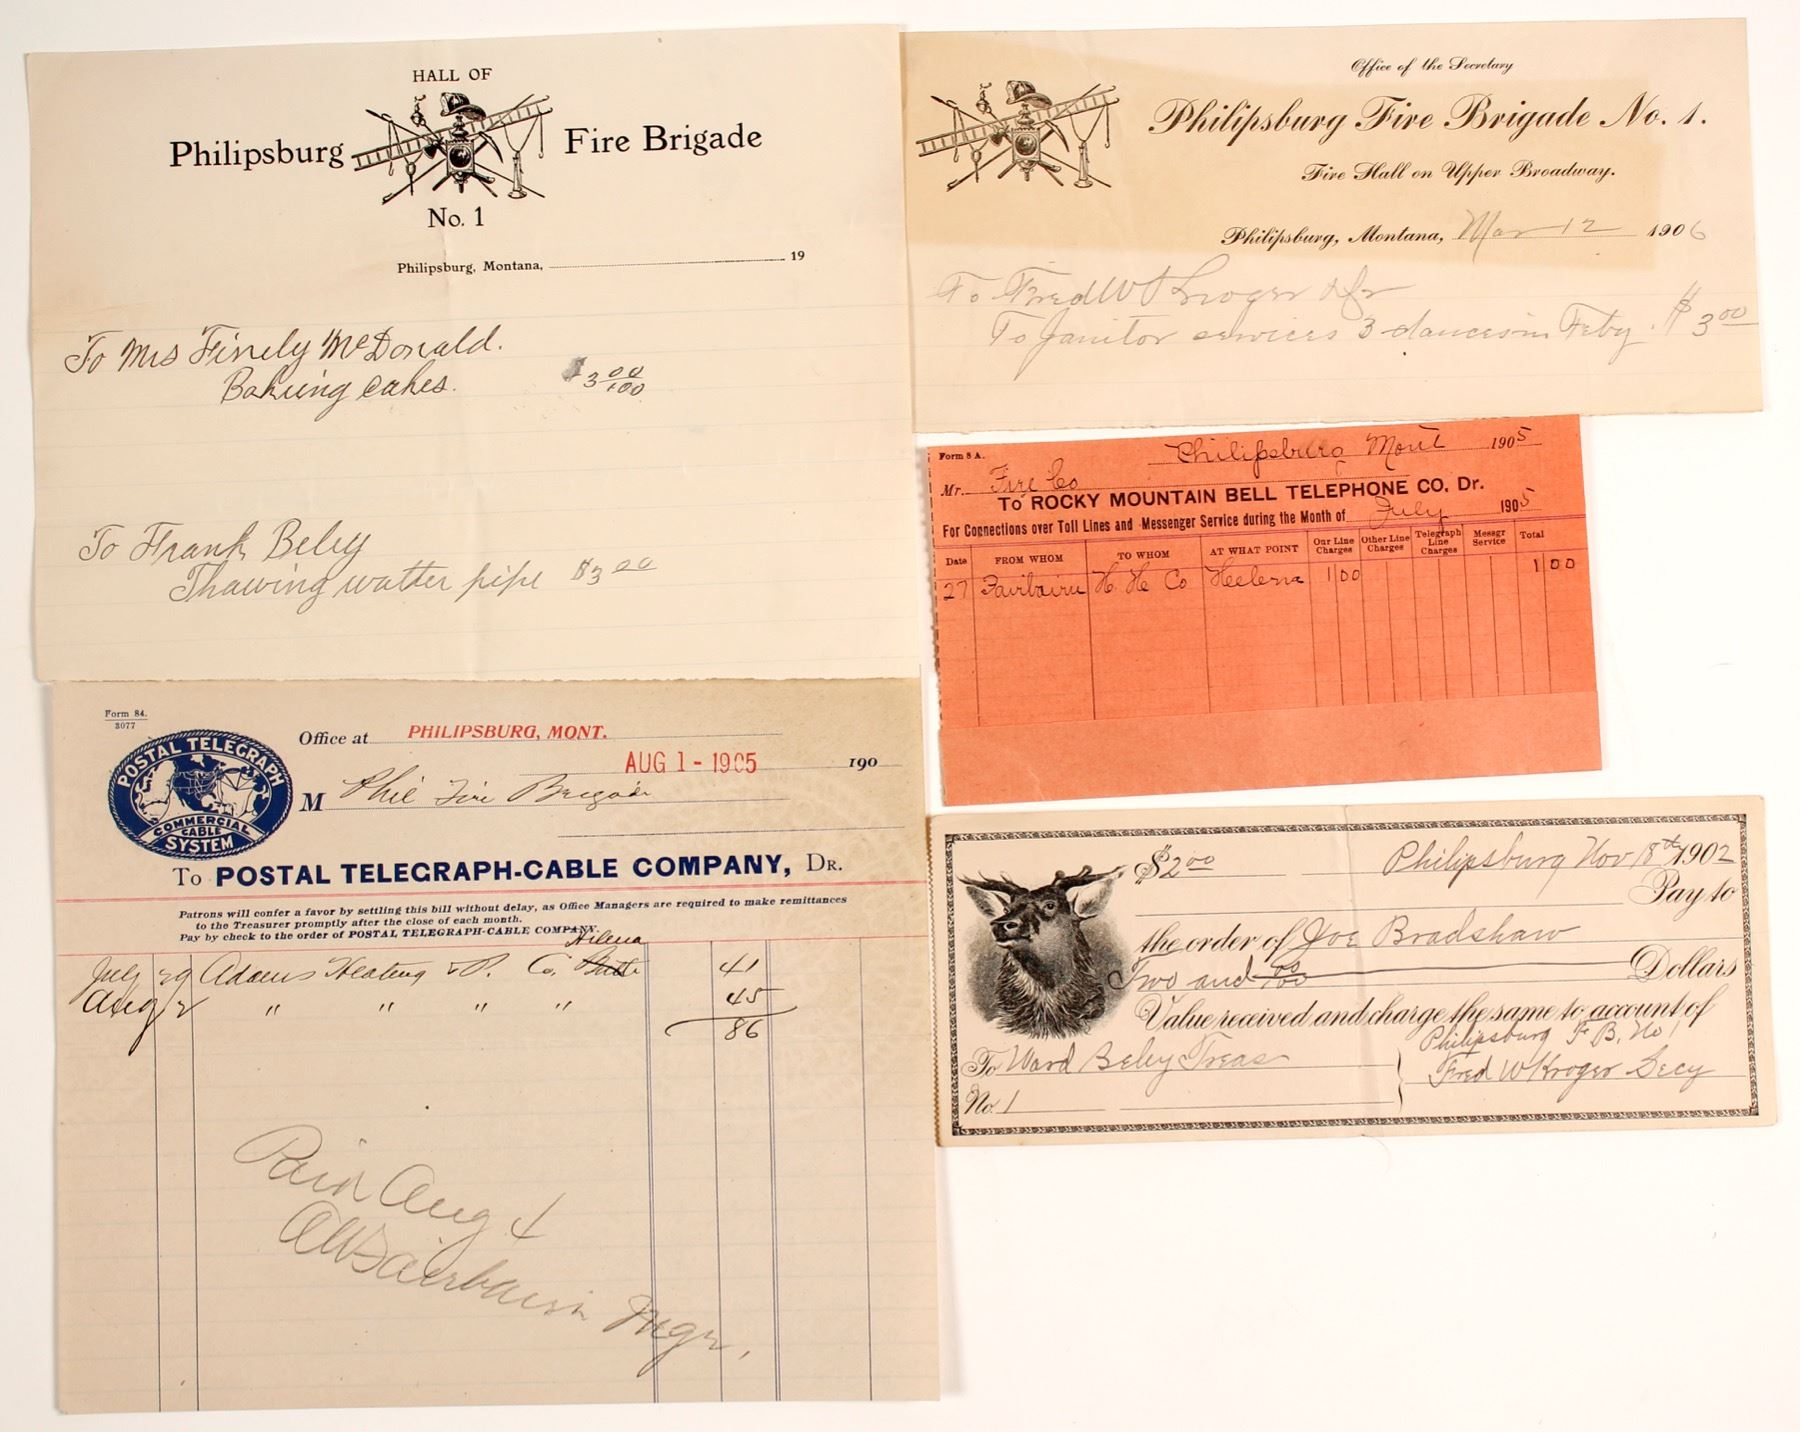 HALL OF
Philipsburg Fire Brigade
No. 1
Philipsburg, Montana, 19
To Mrs Finely McDonald.
Bakiing cakes. $3 00/100
To Frank Beley
Thawing watter pipe $3 00
Office of the Secretary
Philipsburg Fire Brigade No. 1.
Fire Hall on Upper Broadway.
Philipsburg, Montana, Mar 12 1906
To Fred W Kroger Dr
To Janitor services 3 dances in Feby. $3 00
Form 8 A. Philipsburg Mont 1905
Mr. Fire Co
To ROCKY MOUNTAIN BELL TELEPHONE CO, Dr.
For Connections over Toll Lines and Messenger Service during the Month of July 1905
Date FROM WHOM TO WHOM AT WHAT POINT Our Line Charges Other Line Charges Telegraph Line Charges Messgr Service Total
27 Fairbairn H. H. Co Heelena 1 00 1 00
Form 84.
3077
POSTAL TELEGRAPH
COMMERCIAL
CABLE
SYSTEM
Office at PHILIPSBURG, MONT.
AUG 1 - 1905 190
M Phil Fire Brigade
To POSTAL TELEGRAPH-CABLE COMPANY, Dr.
Patrons will confer a favor by settling this bill without delay, as Office Managers are required to make remittances
to the Treasurer promptly after the close of each month.
Pay by check to the order of POSTAL TELEGRAPH-CABLE COMPANY.
Helena
July 29 Adams Heating & P. Co, Butte 41
Aug 2 " " " " 45
86
Paid Aug 4
AW Fairbairn Mgr,
$2 00 Philipsburg Nov 18th 1902
Pay to
the order of Joe Bradshaw
Two and 00/100 Dollars
Value received and charge the same to account of
Philipsburg F B. No 1
To Ward Beley Treas Fred W Kroger Secy
No. 1